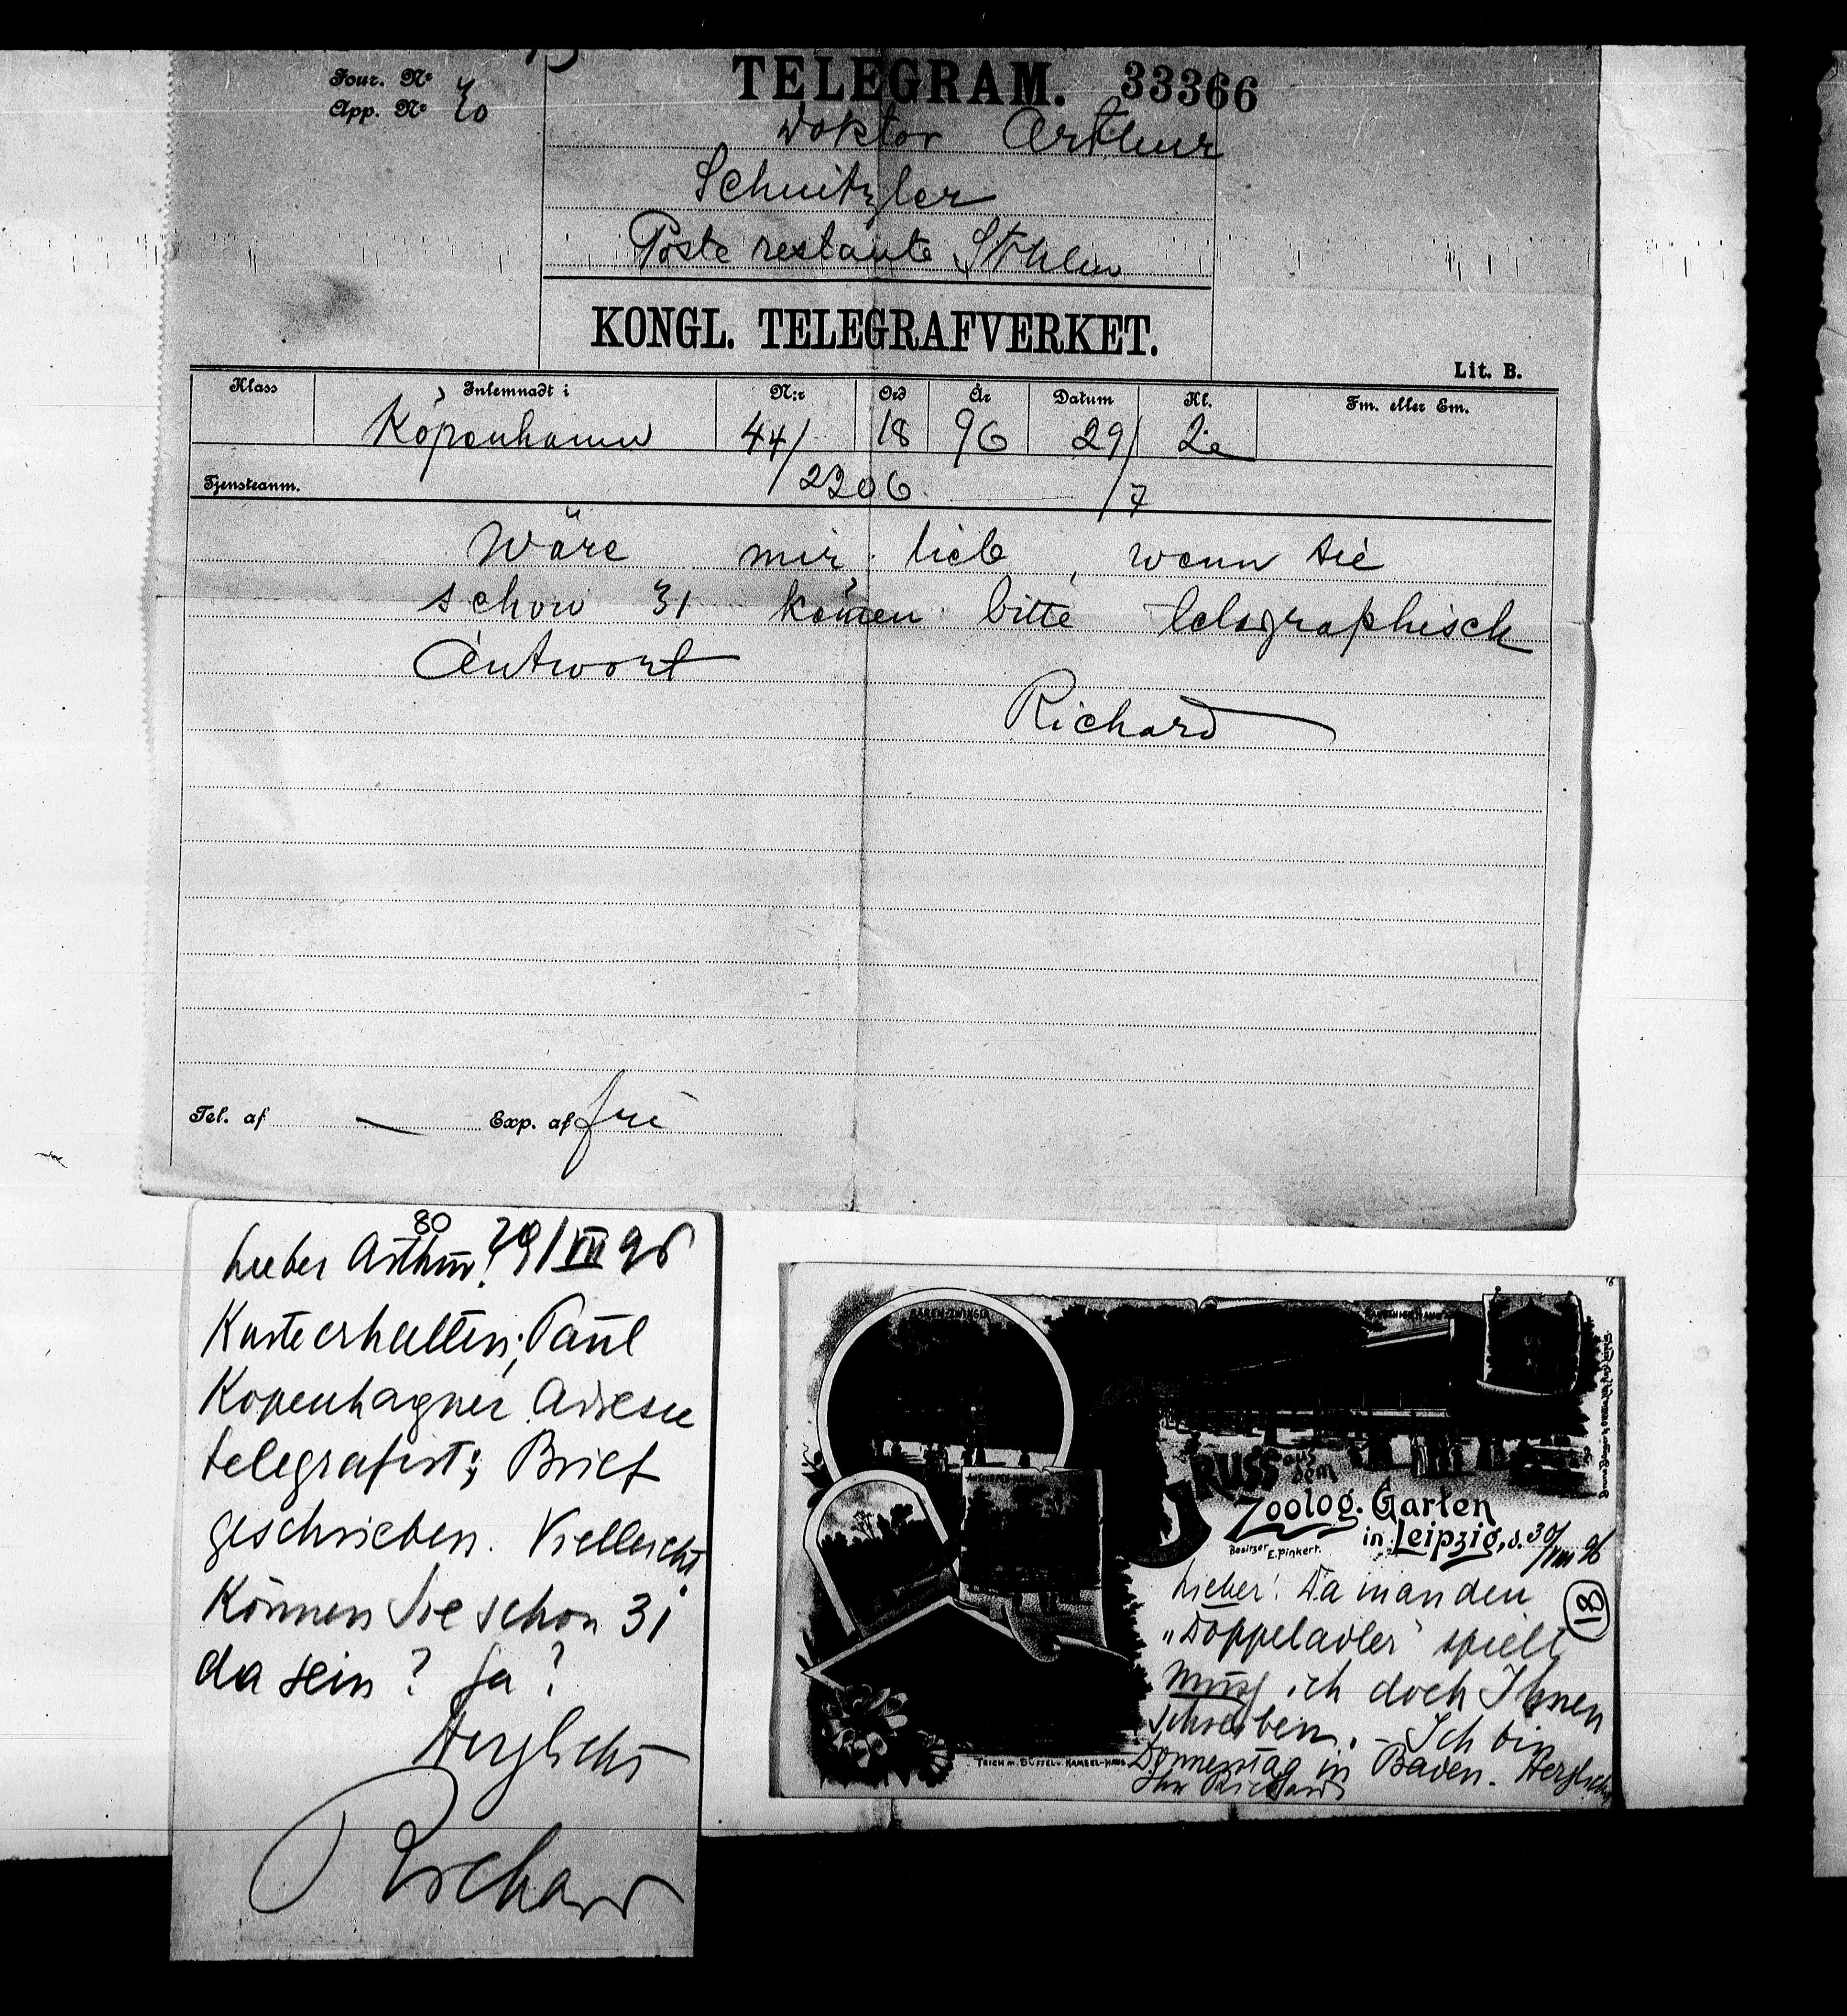 TELEGRAM. 33366
Jour. No
App. No 40
Doktor Arthur
Schnitzler
Poste restante Sthlm
KONGL. TELEGRAFVERKET.
Lit. B.
Klass Inlemnadt i N:r Ord År Datum Kl. Fm. eller Em.
Köpenhamn 44/ 18 96 29/ 2e
Tjensteanm. /2206 /7
Wäre mir lieb, wenn sie
schon 31 kom̄en bitte telegraphisch
Antwort
Richard
Tel. af Exp. af fri
80
Lieber Arthur! 29/VII 96
Karte erhalten; Paul
Kopenhagner Adresse
telegrafirt; Brief
geschrieben. Vielleicht
Können Sie schon 31
da sein? Ja?
Herzlichst
Richard
BÄREN-ZWINGER
ANTILOPEN-HAUS
GRUSS aus
dem
Zoolog. Garten
in Leipzig, d. 30/VIII 96
Besitzer E. Pinkert.
Lieber! Da man den
18
„Doppeladler“ spielt
muss ich doch Ihnen
schreiben. – Ich bin
Donnerstag in Baden. Herzlichst
Ihr Richard
TEICH m. BÜFFEL u. KAMEEL-HAUS